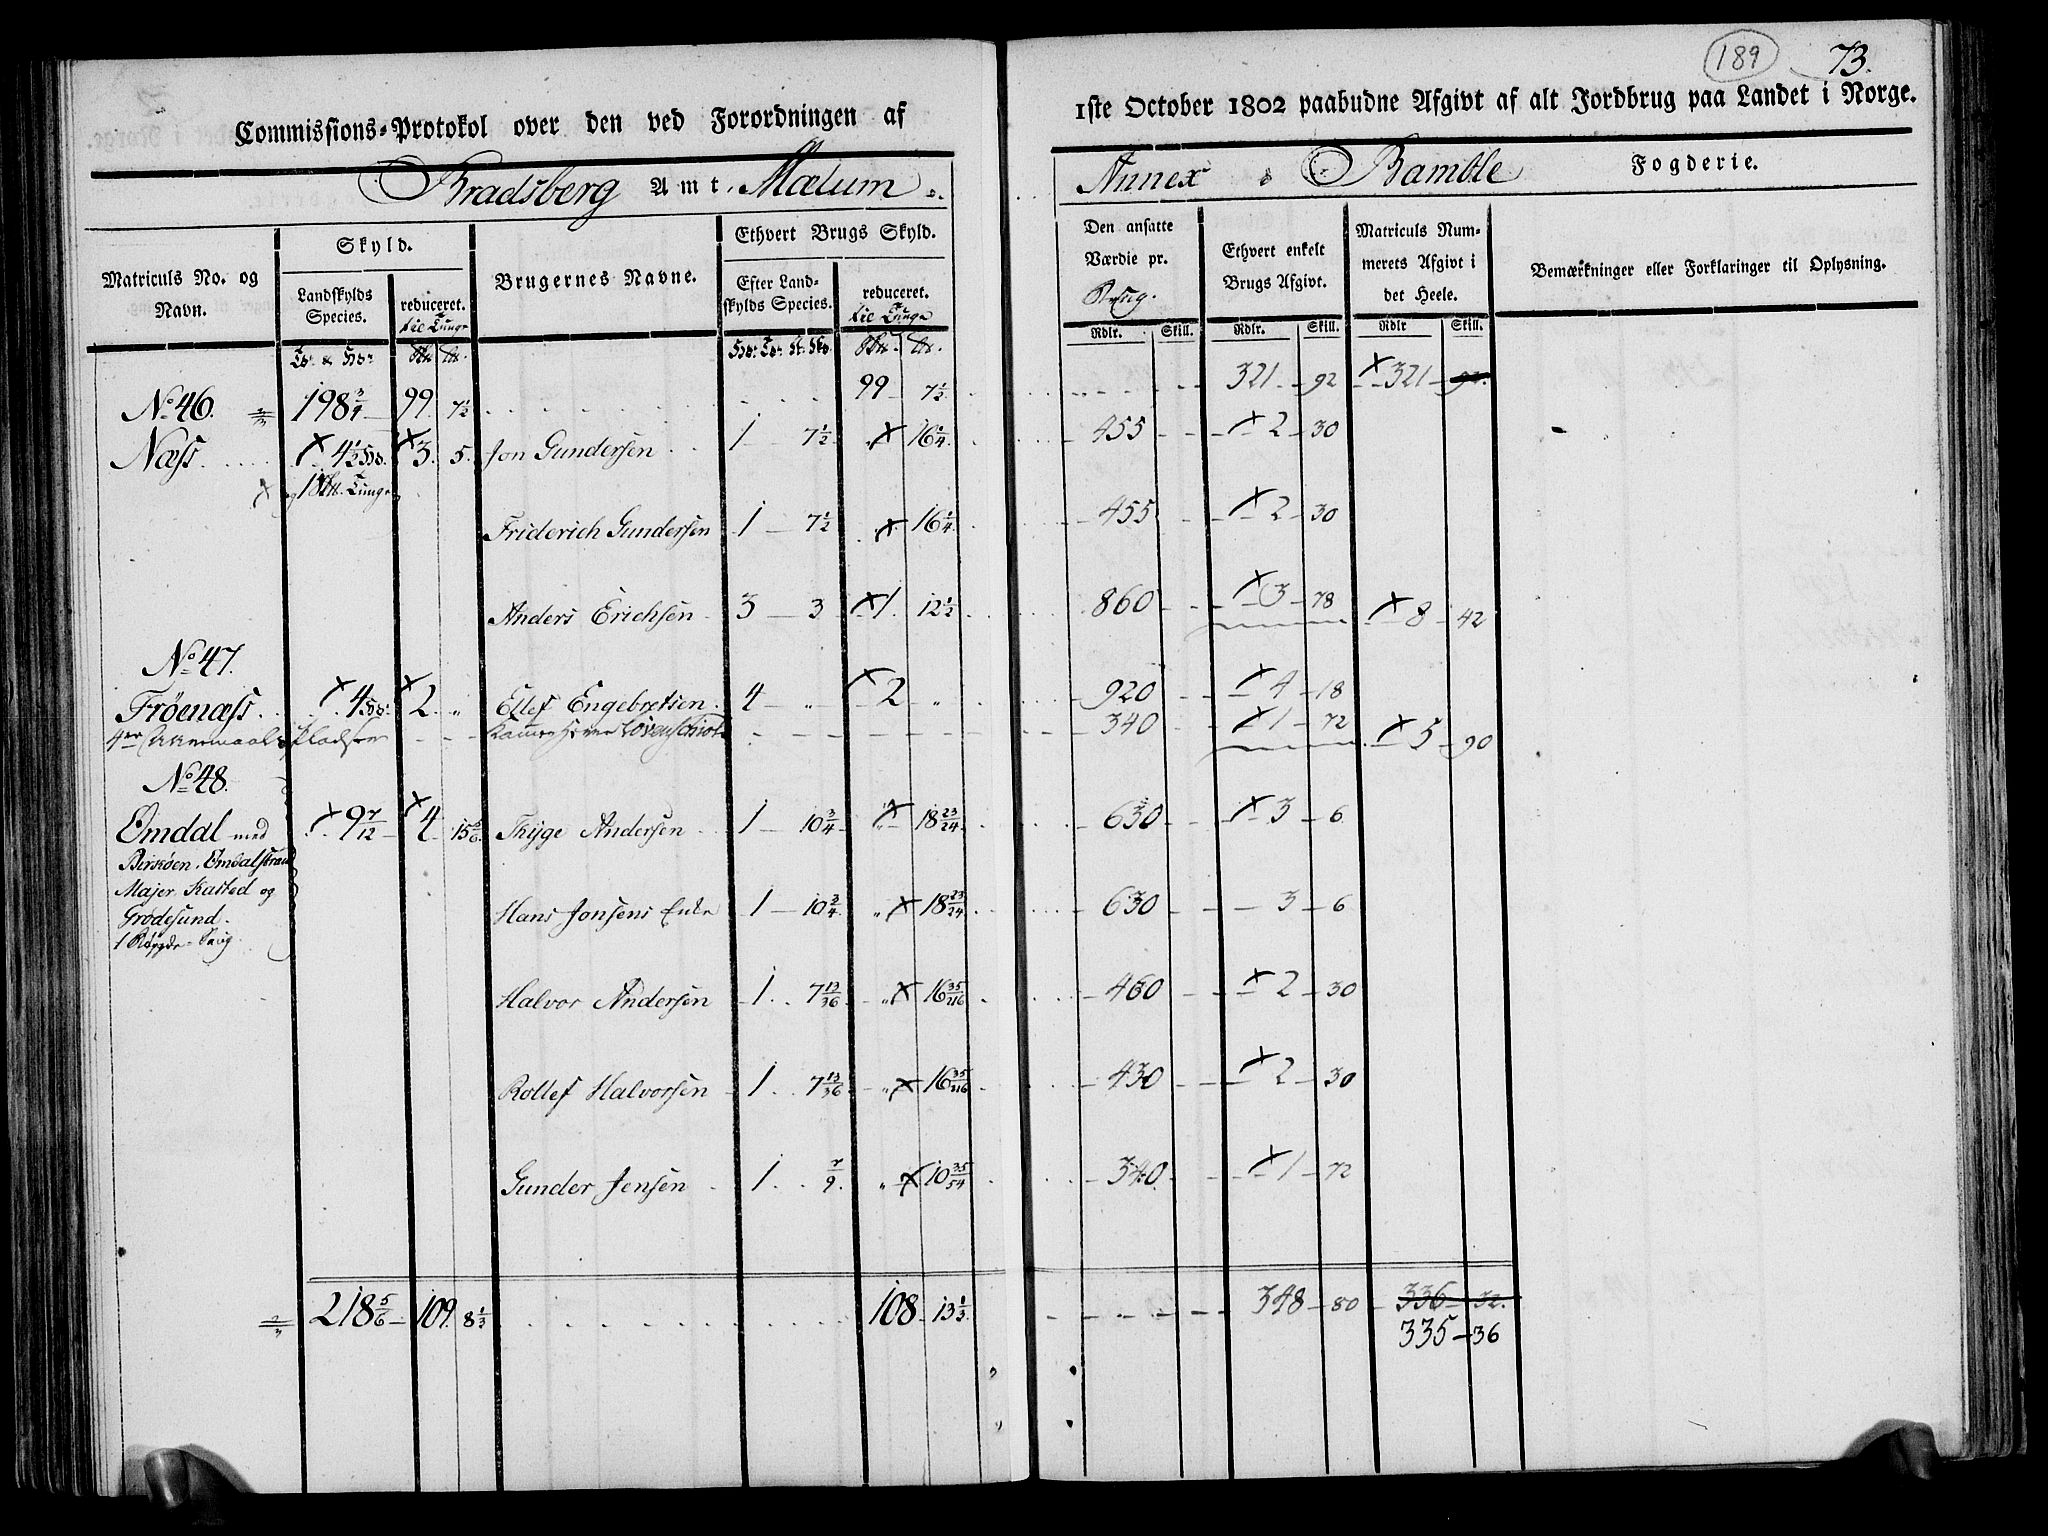 189 73.
Commissions-Protokol over den ved Forordningen af 1ste October 1802 paabudne Afgivt af alt Jordbrug paa Landet i Norge.
Bradsberg Amt. Mælum Annex Bamble Fogderie.
Matriculs No. og Navn.
Skyld.
Landskylds Species.
reduceret.
til Tunge
Brugernes Navne.
Ethvert Brugs Skyld.
Efter Landskylds Species.
reduceret.
til Tunge
Den ansatte Værdie pr. Brug.
Ethvert enkelt Brugs Afgivt.
Matriculs Nummerets Afgivt i det Heele.
Bemærkninger eller Forklaringer til Oplysning.
Rdlr. Skill. Rdlr. Skill. Rdlr Skill.
198 3/4 99 7 1/2 99 7 1/2 321 92 321 92.
No 46.
Næss 4 1/2 Hd. 3. 5. Jon Gundersen 1 7 1/2 16 1/4 455 2 30
og 1 Tunge
Friderich Gundersen 1 7 1/2 16 1/4 455 2 30
Anders Erichsen 3 3 1 12 1/2 860 3 78 8 42
No 47.
Frøenæss 4 2 " Ellef Engebretsen 4 " 2 " 920 4 18
4 pladser 340 1 72 5 90
No 48.
Omdal med 9 7/12 4 15 5/6 Thyge Andersen 1 10 3/4 " 18 23/24 630 3 6
Birkøen, Omdalstrand
Majer Kasted og
Grødesund.
1 Saug
Hans Jonsens Enke 1 10 3/4 " 18 23/24 630 3 6
Halvor Andersen 1 7 13/36 " 16 35/216 460 2 30
Rollef Halvorsen 1 7 13/36 " 16 35/216 430 2 30
Gunder Jensen 1 7/9 " 10 35/54 340 1 72
218 5/6 109 8 1/3 108 13 1/3 348 80 336 32.
335 36